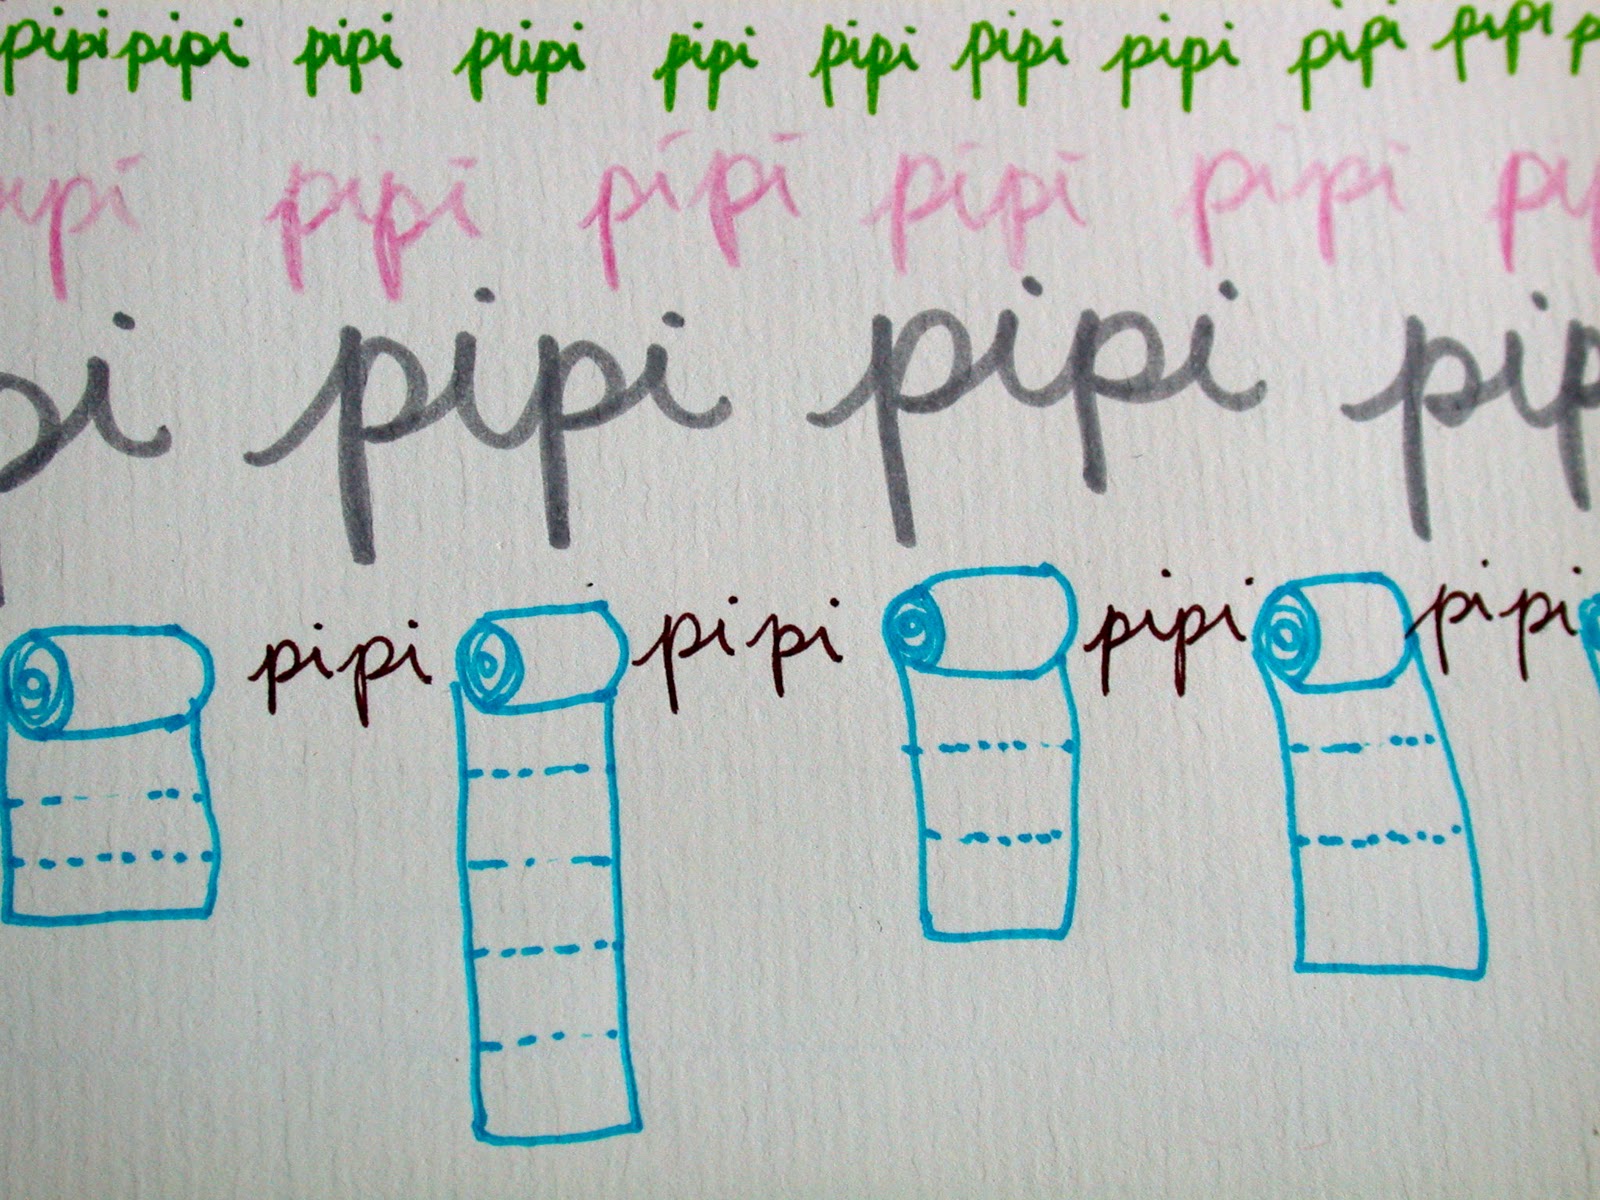 pipi pipi pipi pipi pipi pipi pipi pipi pipi pipi p
ipi pipi pipi pipi pipi pi
pi pipi pipi pip
pipi pipi pipi pipi